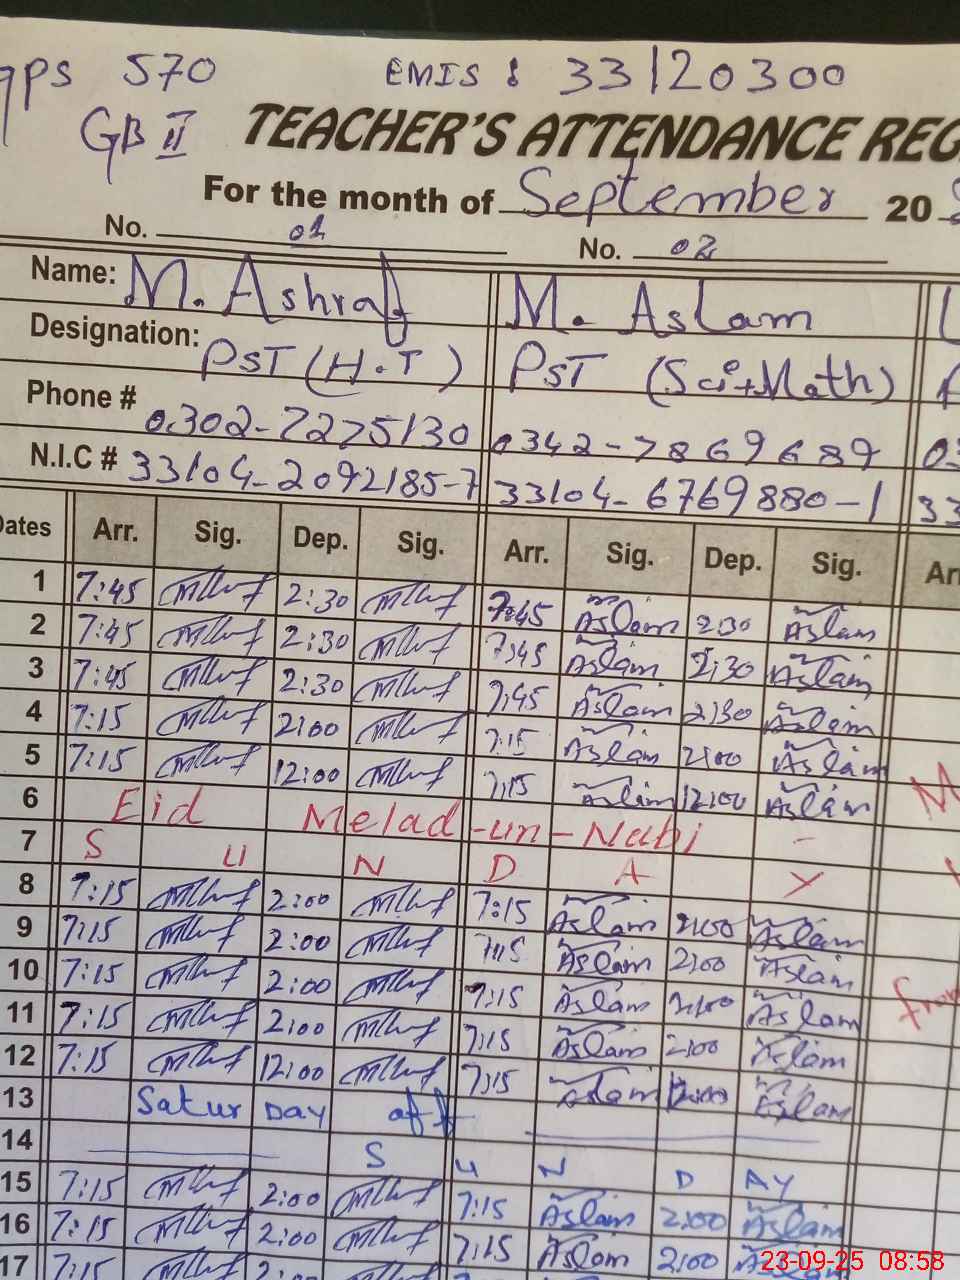 gps 570 EMIS : 33120300
GB II TEACHER'S ATTENDANCE REG
For the month of September 20
No. 01 No. 02
Name: M. Ashraf M. Aslam
Designation: PST (H.T) PST (Sci+Math)
Phone # 0302-7275130 0342-7869689 03
N.I.C # 33104-2092185-7 33104-6769880-1 33
Dates Arr. Sig. Dep. Sig. Arr. Sig. Dep. Sig. Arr
1 7:45 2:30 7:45 Aslam 2:30 Aslam
2 7:45 2:30 7:45 Aslam 2:30 Aslam
3 7:45 2:30 7:45 Aslam 2:30 Aslam
4 7:15 2:00 7:15 Aslam 2:00 Aslam
5 7:15 12:00 7:15 Aslam 12:00 Aslam
6 Eid Melad-un-Nabi - M
7 S U N D A Y
8 7:15 2:00 7:15 Aslam 2:00 Aslam
9 7:15 2:00 7:15 Aslam 2:00 Aslam
10 7:15 2:00 7:15 Aslam 2:00 Aslam
11 7:15 2:00 7:15 Aslam 2:00 Aslam
12 7:15 12:00 7:15 Aslam 12:00 Aslam
13 Satur DAY off
14 S U N D AY
15 7:15 2:00 7:15 Aslam 2:00 Aslam
16 7:15 2:00 7:15 Aslam 2:00 Aslam
17 7:15
23-09-25 08:58